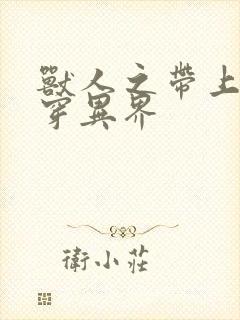 獸人之帶上
穿異界
衛小莊